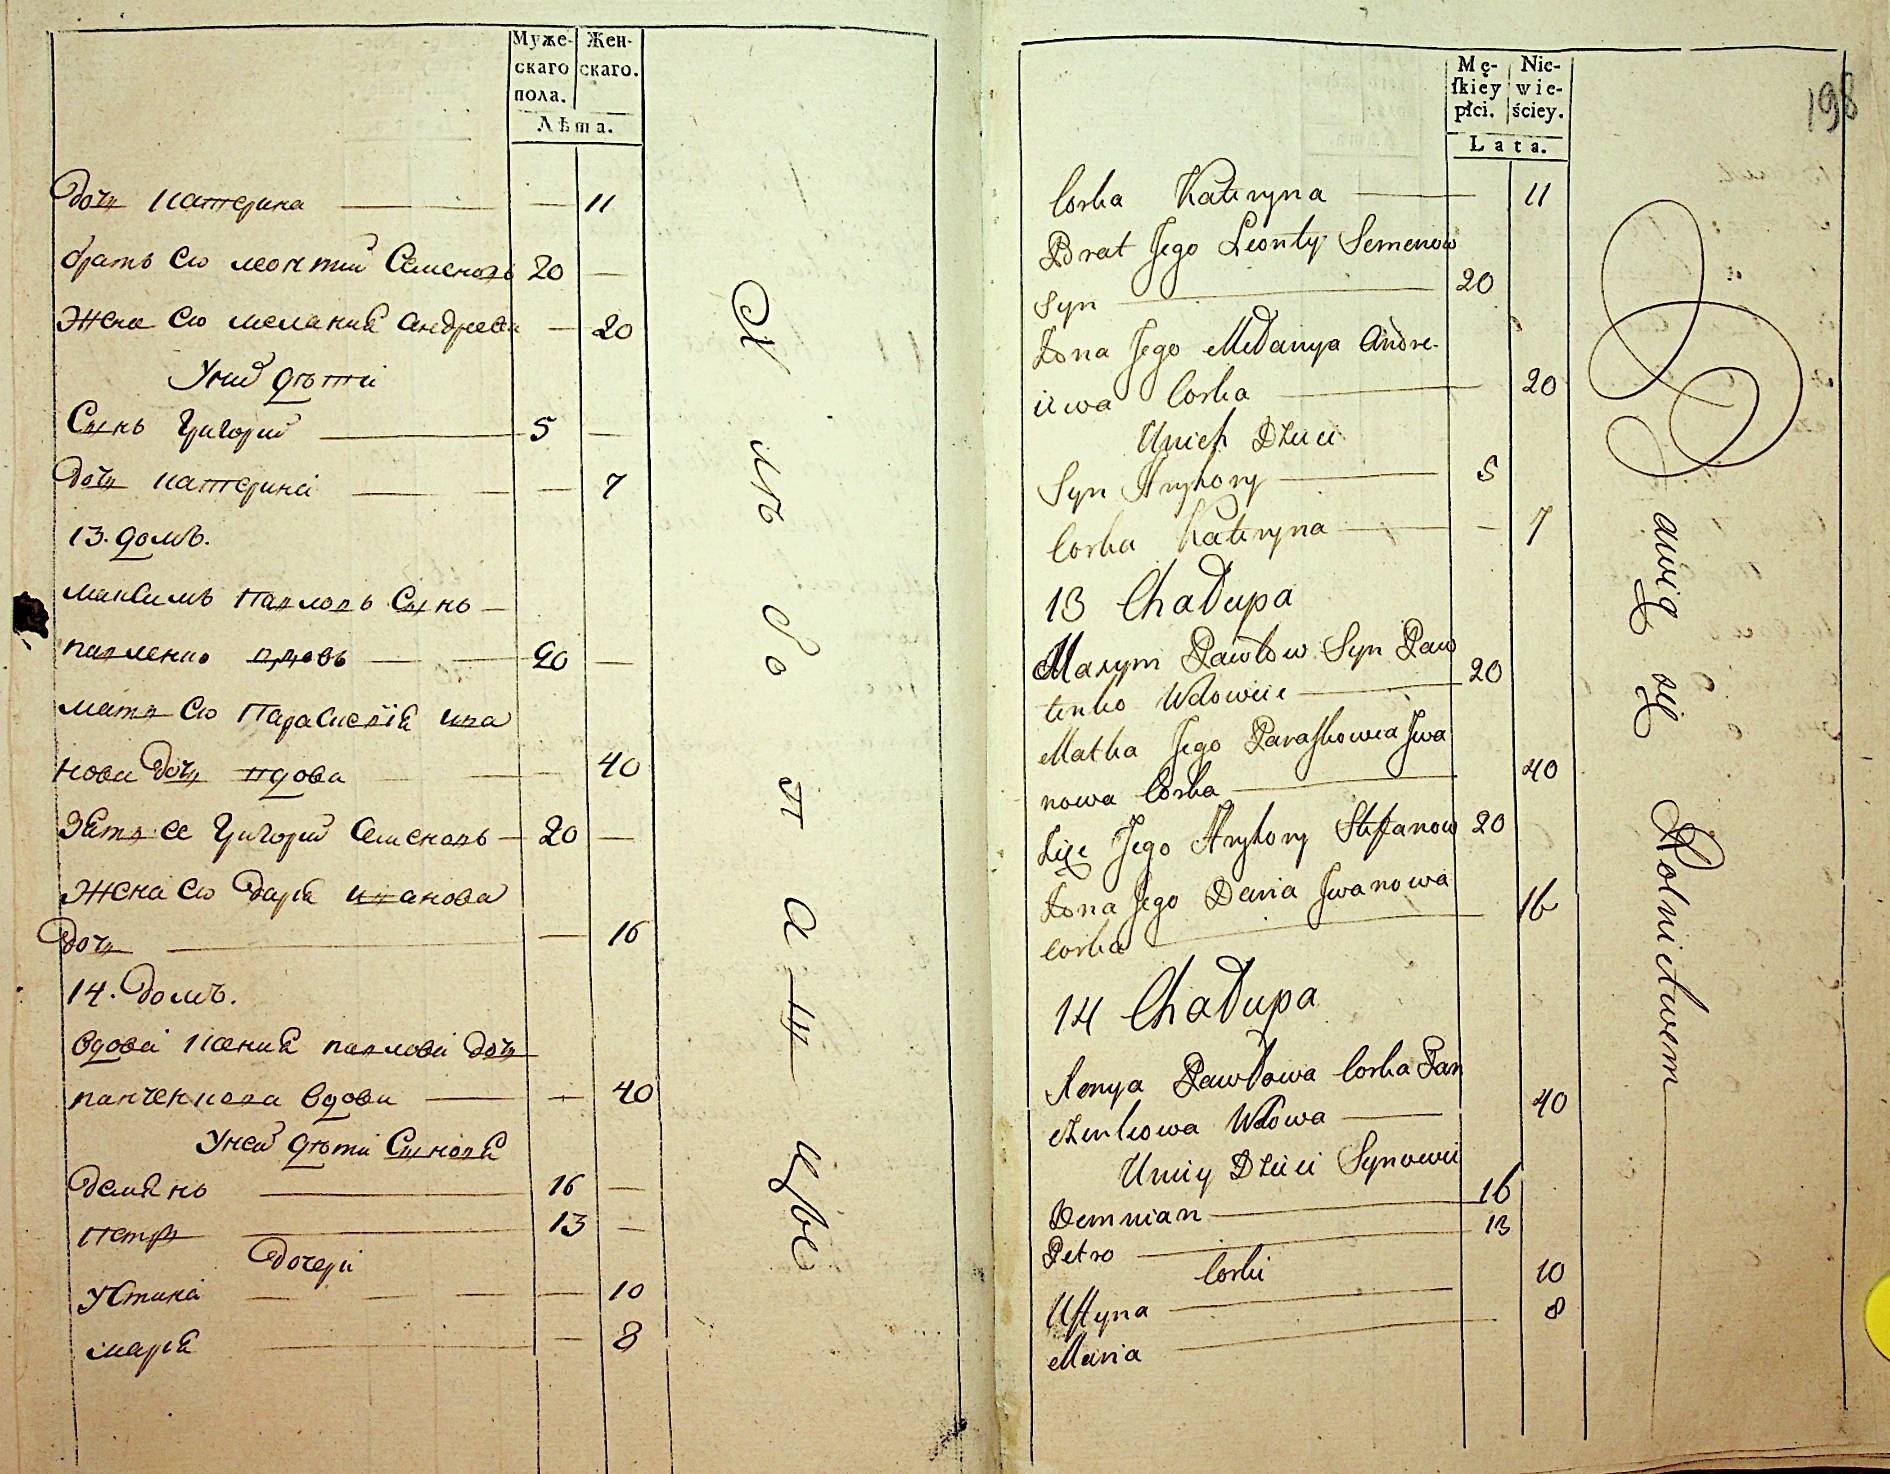 Муже-
скаго
пола.
Жен-
скаго.
Лѣта.
дочь катерина 11
братъ его леонтий Семеновъ 20
Жена его мелания андреева 20
У них дѣти
Сынъ григорий 5
дочь катерина 7
13. домъ.
максимъ Павловъ Сынъ
павленко вдовъ 20
мать его Параскевія ива
нова дочь вдова 40
Зять ее григорий Семеновъ 20
Жена его дарія иванова
дочь 16
14. домъ.
вдова ксения павлова дочь
панченкова вдова 40
У ней дѣти Сыновя
демянъ 16
петръ 13
дочери
Устина 10
мария 8
Хлѣбопащцы
198
Mę-
ſkiey
płci.
Nie-
wie-
ściey.
Lata.
Corka Kateryna 11
Brat Jego Leonty Semenow
Syn 20
Żona Jego Mełanya Andre-
iewa Corka 20
U nich Dzieci
Syn Hryhory 5
Corka Kateryna 7
13 Chałupa
Maxym Pawłow Syn Paw
łenko Wdowiec 20
Matka Jego Paraſkowia Jwa
nowa Corka 40
Zięć Jego Hryhory Stefanow 20
Żona Jego Daria Jwanowa
corka 16
14 Chałupa
Xenya Pawłowa Corka Pan
czenkowa Wdowa 40
U niey Dzieci Synowie
Demnian 16
Petro 13
Corki
Uſtyna 10
Maria 8
Bawią się Rolnictwem